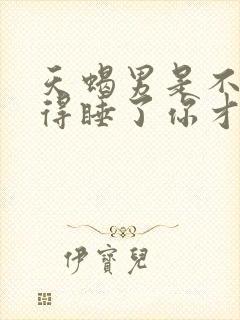 天蝎男是不
得睡了你才
伊寶兒